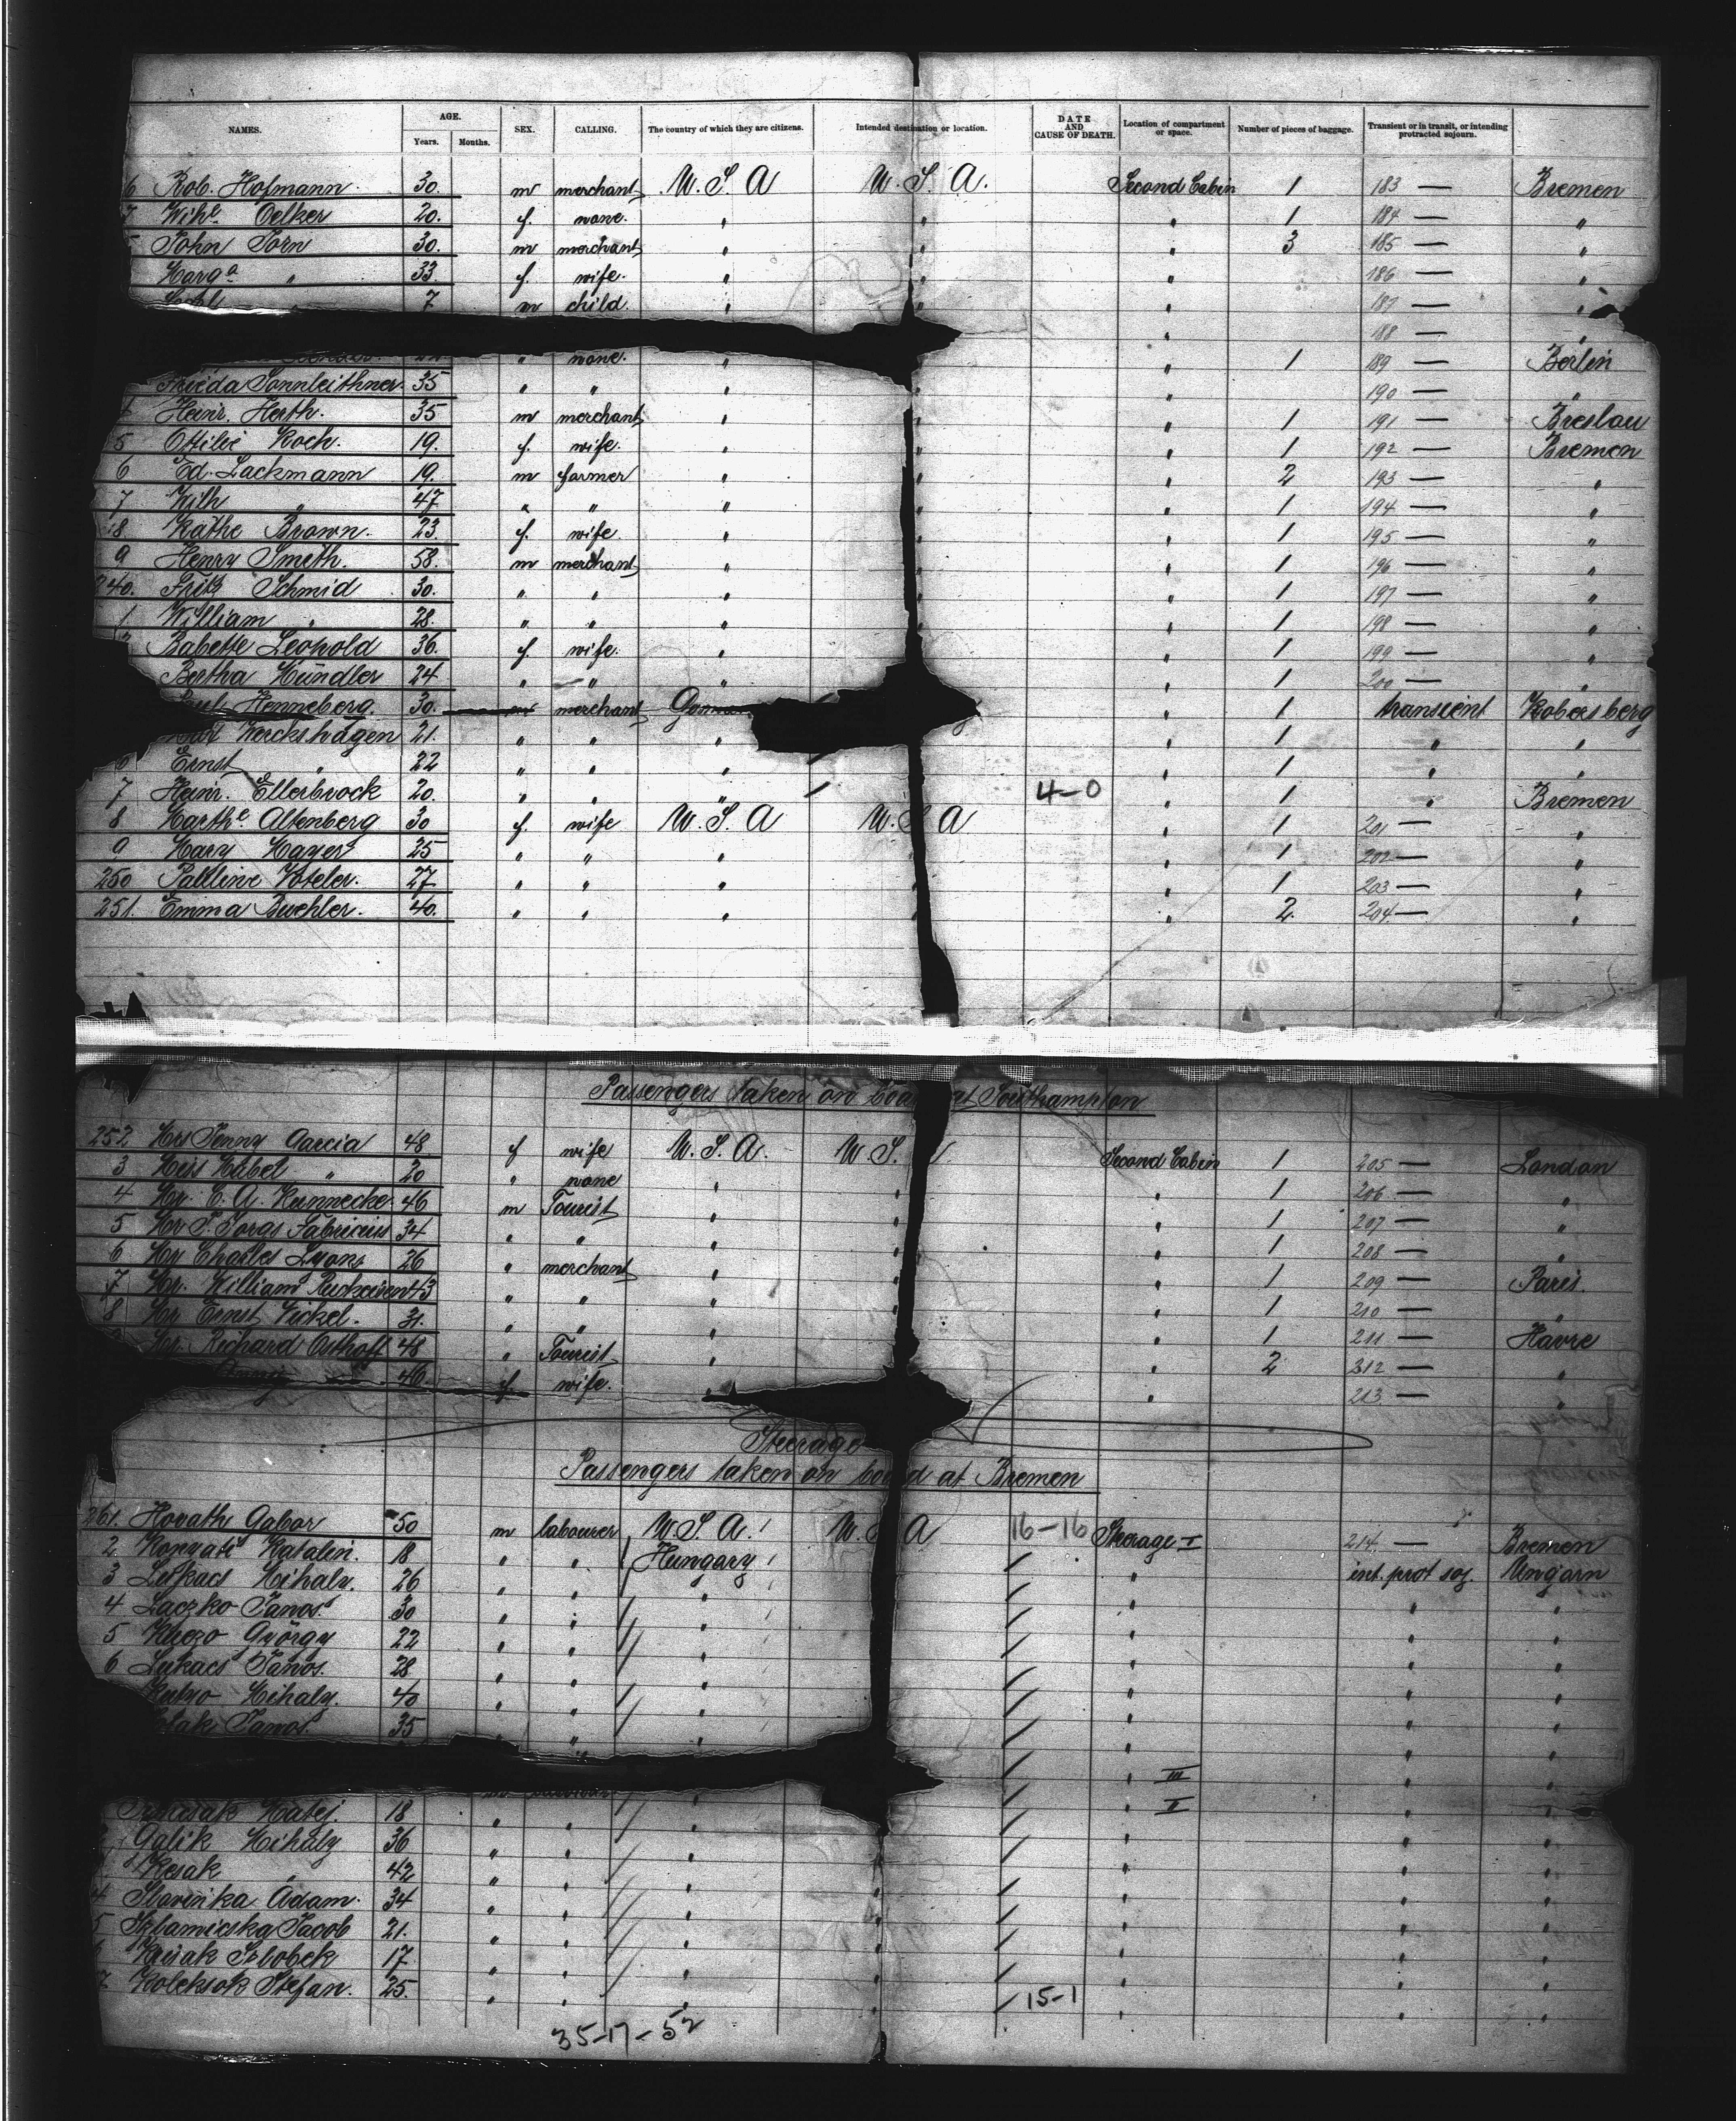 NAMES. AGE. Years. Months. SEX. CALLING. The country of which they are citizens. Intended destination or location. DATE AND CAUSE OF DEATH. Location of compartment or space. Number of pieces of baggage. Transient or in transit, or intending protracted sojourn.
6 Rob. Hofmann. 30. m merchant U.S.A U.S.A. Second Cabin 1 183 — Bremen
7 Wihe. Oelker 20. f. none. " " " 1 184 — "
John Jorn 30. m merchant " " " 3 185 — "
Marga " 33. f. wife. " " " 186 — "
7 m child. " " " 187 — "
" 188 — "
none. " 1 189 — Berlin
Frieda Sonnleithner 35 " " " " " 190 — "
Heinr. Herth. 35 m merchant " " " 1 191 — Breslau
5 Ottilie Koch. 19. f. wife. " " " 1 192 — Bremen
6 Ed. Lackmann 19. m farmer " " " 2 193 — "
7 Wilh " 47 " " " " " 1 194 — "
8 Käthe Brown. 23. f. wife " " " 1 195 — "
9 Henry Smeth. 58. m merchant " " " 1 196 — "
240. Fritz Schmid 30. " " " " " 1 197 — "
1 William " 28. " " " " " 1 198 — "
Babette Leopold 36. f. wife. " " 1 199 — "
Bertha Hündler 24 " " " " 1 200 — "
Henneberg. 30. merchant 1 transient Kobersberg
Werckshagen 21. " " " " 1 " "
6 Ernst " 22 " " " " 1 " "
7 Heinr. Ellerbrock 20. " " " 4-0 " 1 " Bremen
8 Marthe. Altenberg 30 f. wife U.S.A U.S.A " 1 201 — "
9 Mary Mayer 25 " " " " " 1 202 — "
250 Pauline Voteler. 27 " " " " " 1 203 — "
251. Emma Buehler. 40. " " " " " 2 204 — "
Passengers taken on board at Southampton
252 Mrs Jenny Garcia 48 f wife U.S.A. U.S. Second Cabin 1 205 — London
3 Miss Mabel " 20 " none " " " 1 206 — "
4 Mr. C. A. Kunnecke 46 m Tourist " " " 1 207 — "
5 Mr J. Joras Fabricius 34 " " " " " 1 208 — "
6 Mr Charles Lyons 26 " merchant " " " 1 209 — Paris.
7 Mr. William 43 " " " " " 1 210 — "
8 Mr Ernst Nickel. 31. " " " " " 1 211 — Havre
Mr. Richard Osthoff 48 " Tourist " " 2 212 — "
46 f. wife. " " 213 — "
Steerage
Passengers taken on board at Bremen
261. Hovath Gabor 50 m labourer U.S.A. U.S.A 16-16 Steerage I 214. — Bremen
2. Katalin. 18 " " Hungary " int. prot soj. Ungarn
3 Lukacs Mihaly. 26 " " " " " "
4 Laczko Janos. 30 " " " " " "
5 György 22 " " " " " "
6 Lukacs Janos. 28 " " " " " "
Mihaly. 40 " " " " " "
Janos. 35 " " " " " "
" III " "
Matej. 18 " " " " II " "
Galik Mihaly 36 " " " " " " "
42 " " " " " " "
Adam. 34 " " " " " " "
Jacob 21. " " " " " " "
17 " " " " " " "
7 Stefan. 25. " " " " 15-1 " " "
35-17-52